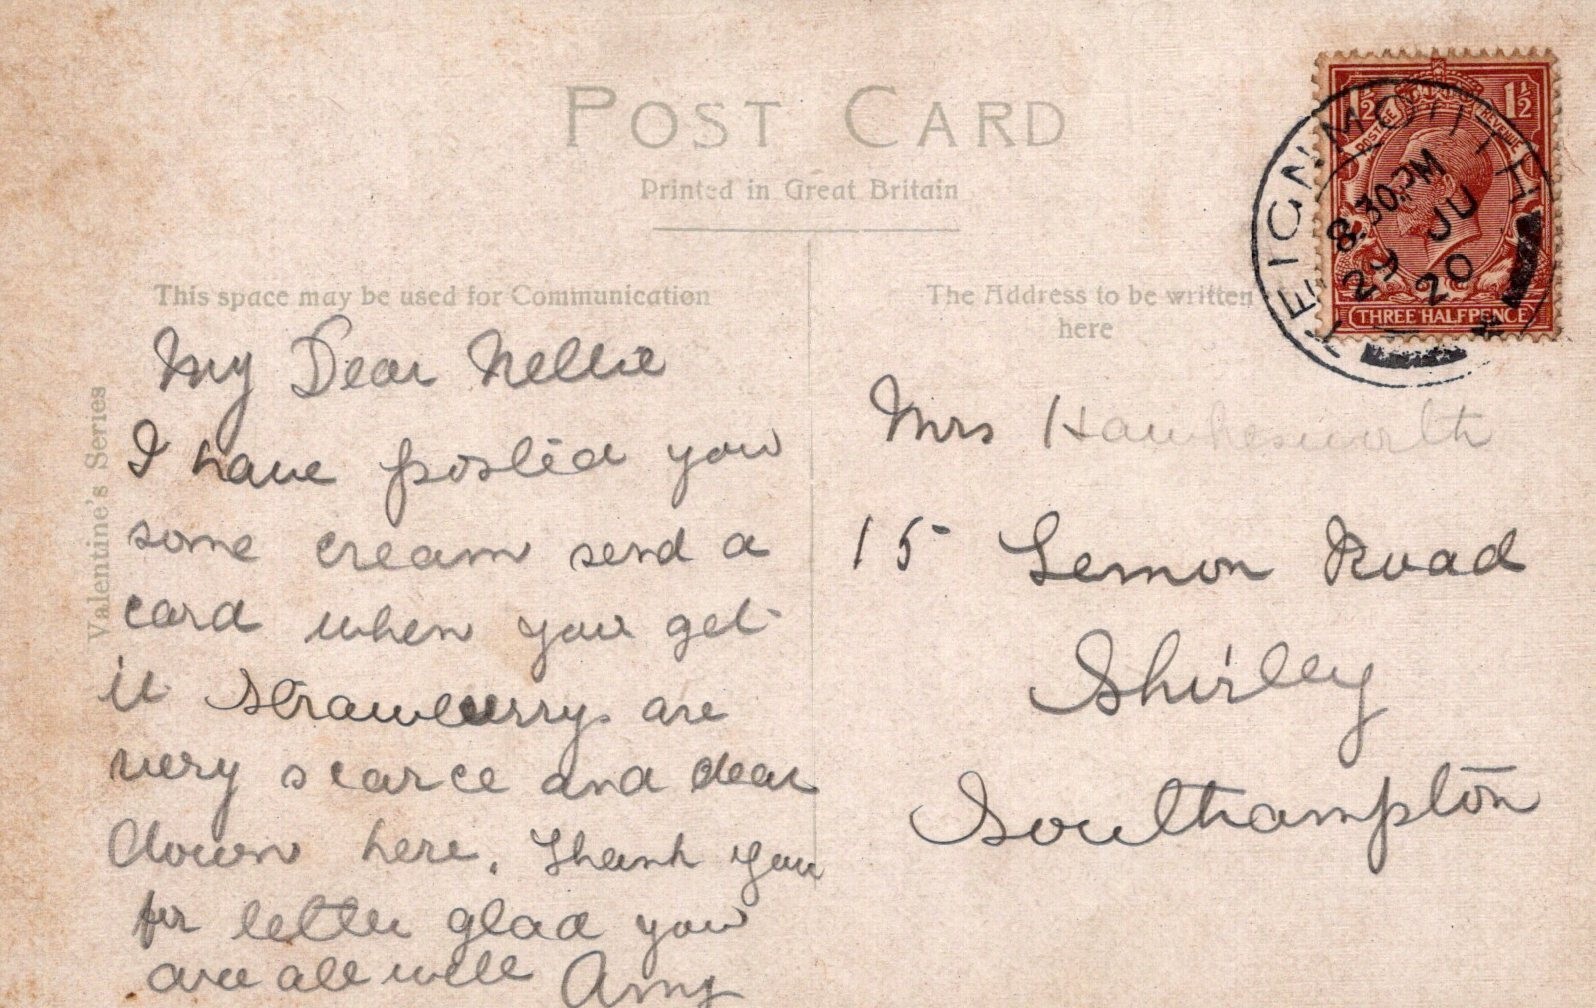 POST CARD
Printed in Great Britain
This space may be used for Communication
The Address to be written
here
Valentine's Series
1½ 1½
POSTAGE REVENUE
THREE HALFPENCE
TEIGNMOUTH
8.30PM
29 JU
20
My Dear Nellie
I have posted you
some cream send a
card when you get
it Strawberrys are
very scarce and dear
down here. Thank you
for letter glad you
are all well Amy
Mrs Hawkesworth
15 Lemon Road
Shirley
Southampton